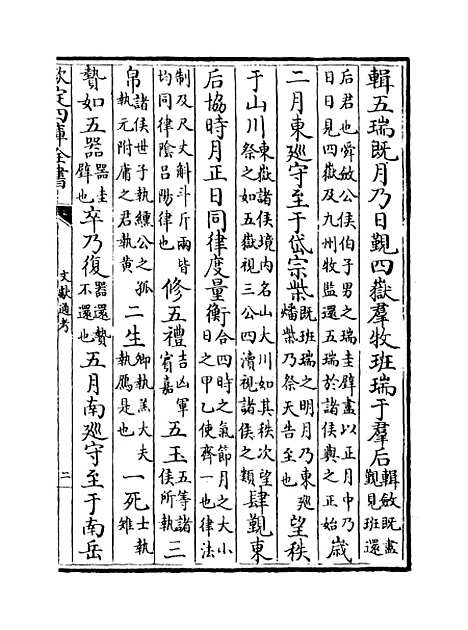 輯五瑞既月乃日覲四嶽羣牧班瑞于羣后輯斂既盡覲見班還
后君也舜斂公侯伯子男之瑞圭璧盡以正月中乃日日見四嶽及九州牧監還五瑞於諸侯與之正始歲
二月東廵守至于岱宗柴既班瑞之明月乃東廵燔柴乃祭天告至也望秩
于山川東嶽諸侯境内名山大川如其秩次望祭之如五嶽視三公四瀆視諸侯之類肆覲東
后協時月正日同律度量衡合四時之氣節月之大小日之甲乙使齊一也律法
制及尺丈斛斗斤兩皆均同律陰呂陽律也修五禮吉凶軍賓嘉五玉五等諸侯所執三
帛諸侯世子執纁公之孤執元附庸之君執黄二生卿執羔大夫執鴈是也一死士執雉
贄如五器器圭璧也卒乃復器還贄不還也五月南廵守至于南岳
欽定四庫全書
文獻通考
二